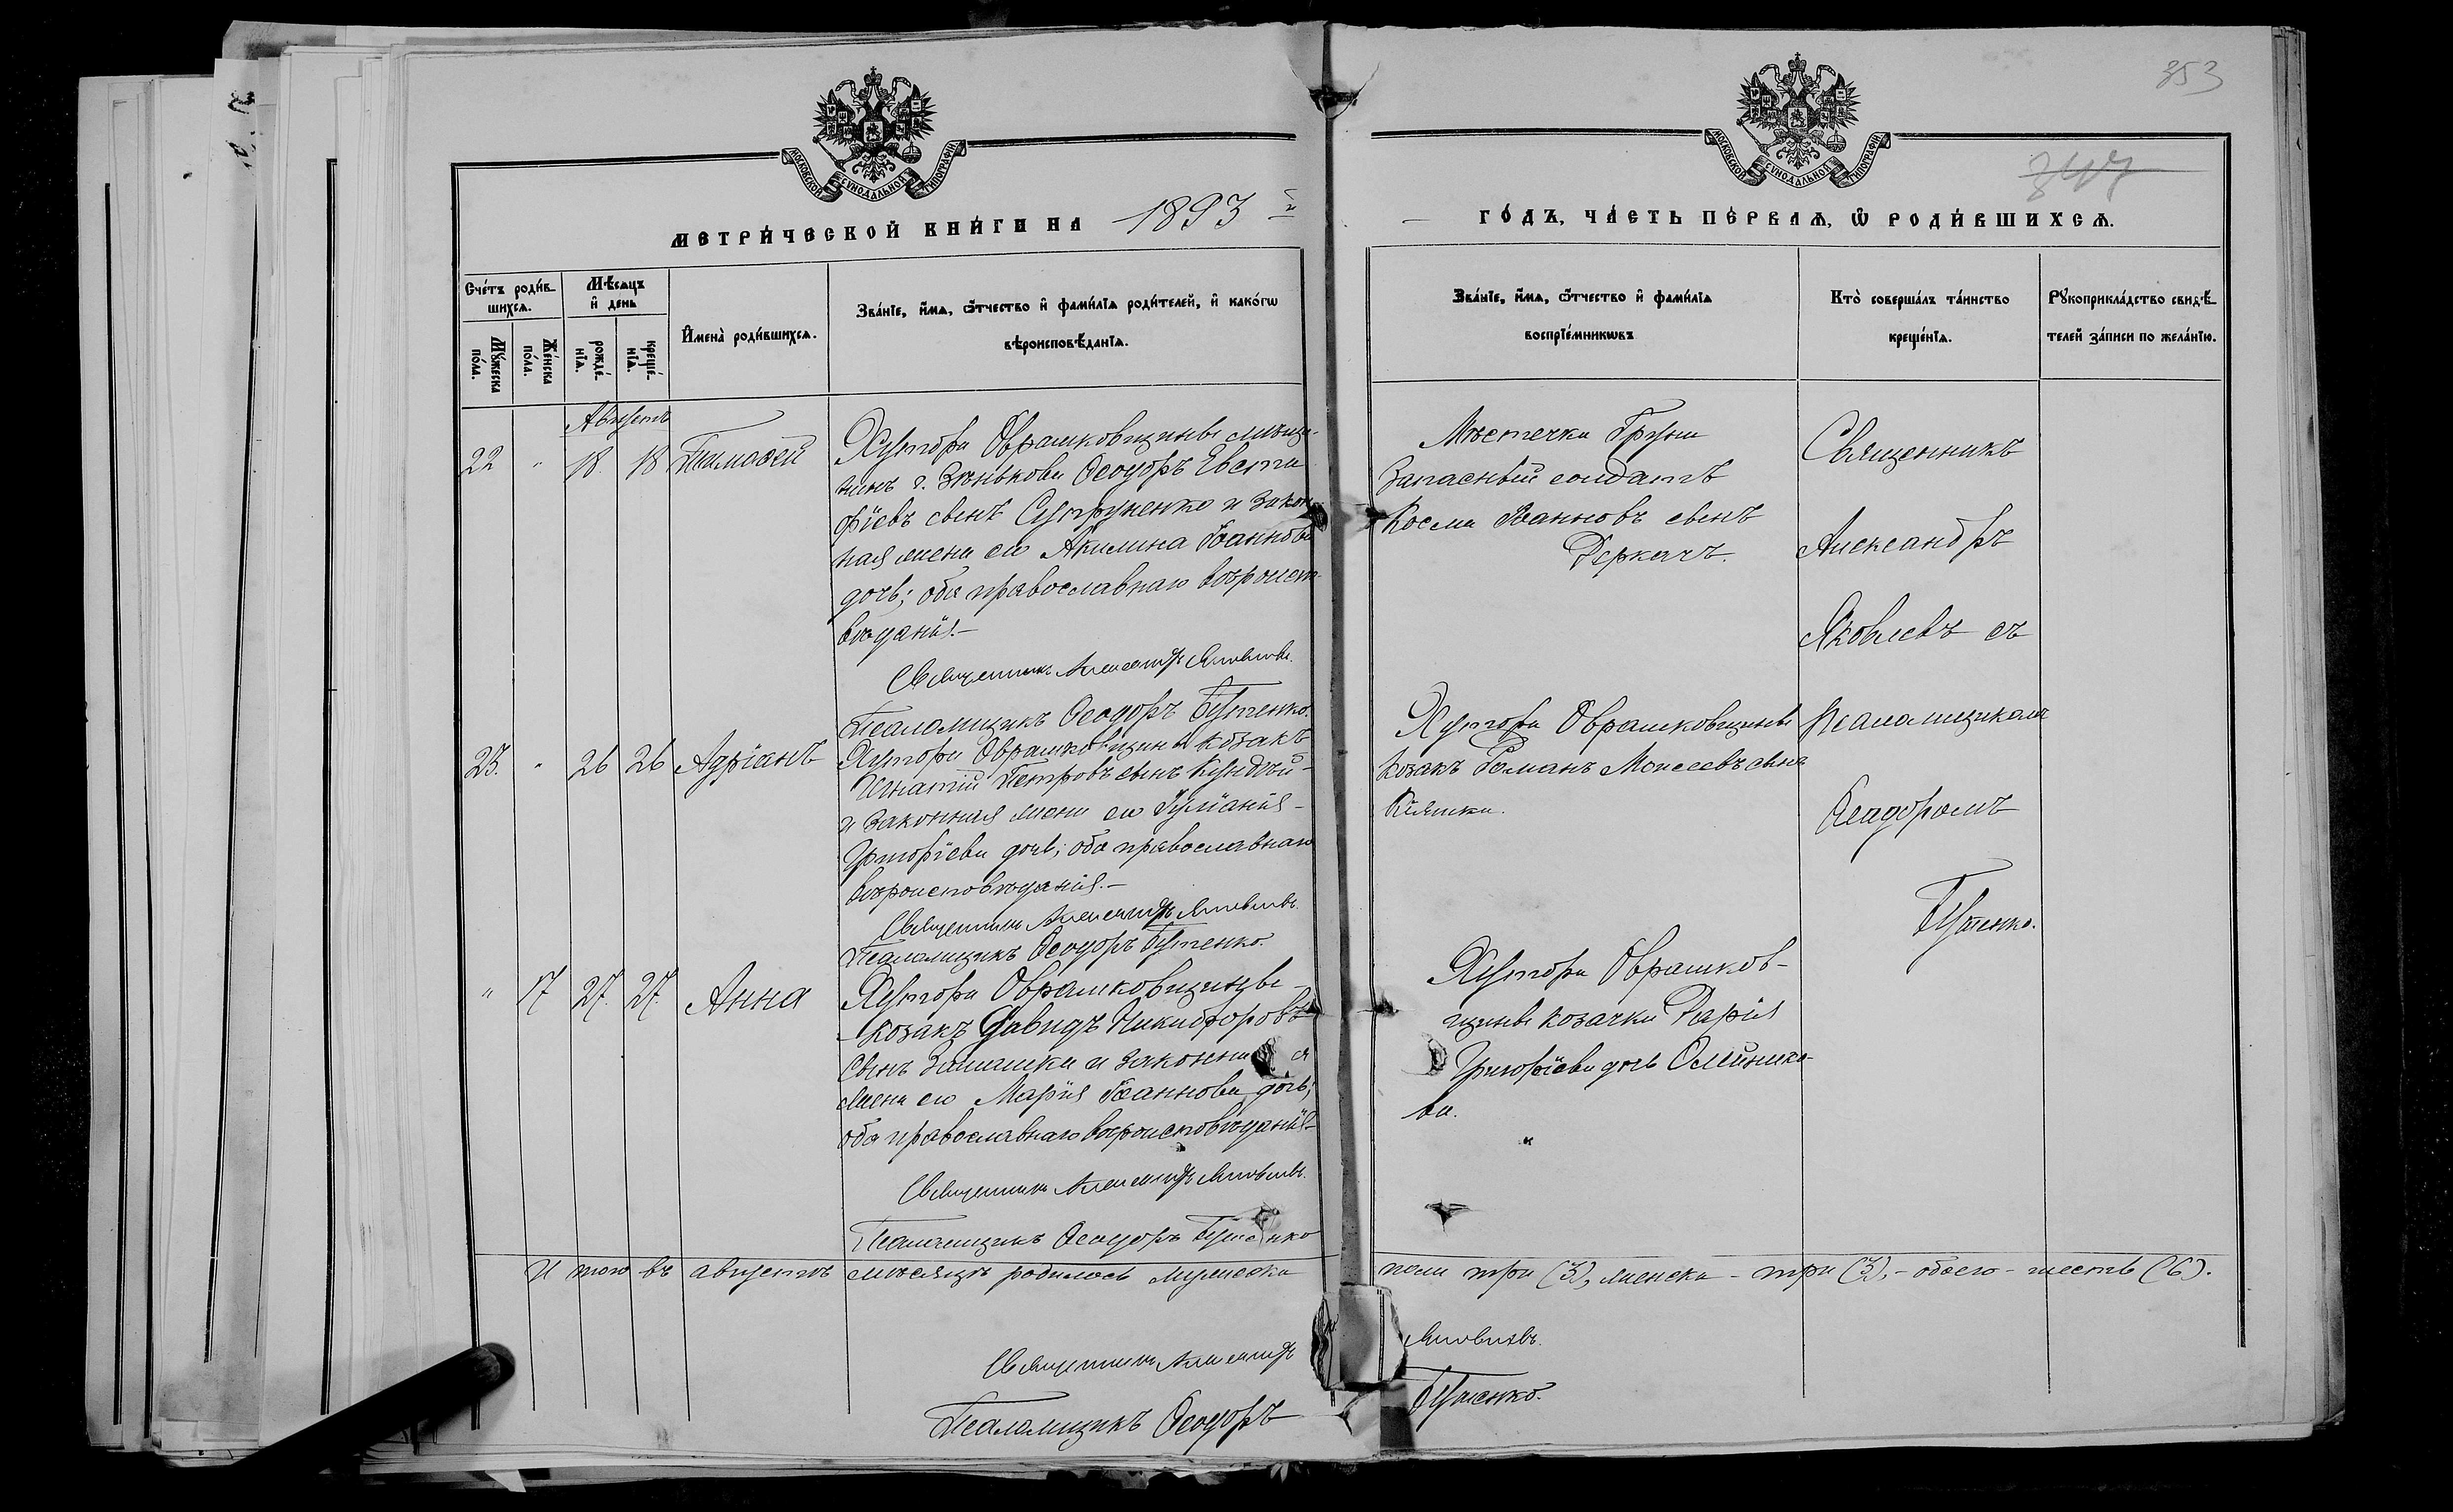 353
347
МОСКОВСКОЙ СѴНОДАЛЬНОЙ ТИПОГРАФІИ
МОСКОВСКОЙ СѴНОДАЛЬНОЙ ТИПОГРАФІИ
МЕТРИ́ЧЕСКОЙ КНИ́ГИ НА 1893 й
ГО́ДЪ, ЧА́СТЬ ПЕ́РВАѦ, Ѡ РОДИ́ВШИХСѦ.
Сче́тъ роди́в-
шихсѧ.
Му́жеска
по́ла.
Же́нска
по́ла.
Мѣ́сѧцъ
и҆ день
рожде́-
нїѧ.
креще́-
нїѧ.
И҆мена̀ роди́вшихсѧ.
Зва́нїе, и҆́мѧ, ѻ҆́тчество и҆ фами́лїѧ роди́телей, и҆ како́гѡ
вѣроисповѣ́данїѧ.
Зва́нїе, и҆́мѧ, ѻ҆́тчество и҆ фами́лїѧ
воспрїе́мникѡвъ
Кто̀ соверша́лъ та́инство
креще́нїѧ.
Рꙋкоприкла́дство свидѣ́-
телей за́писи по жела́нїю.
Августъ
22 " 18. 18 Тимоѳей
Хутора Оврашковщины мѣща-
нинъ г. Зѣнькова Ѳеодоръ Евста
фіевъ сынъ Супруненко и закон
ная жена его Акилина Іоаннова
дочь; оба православнаго вѣроиспо-
вѣданія.-
Священникъ Александръ Яковлевъ.
Псаломщикъ Ѳеодоръ Бутенко.
Мѣстечка Груни
Запасный солдатъ
Косма Іоанновъ сынъ
Деркачъ.
Священникъ
Александръ
Яковлевъ съ
Псаломщикомъ
Ѳеодоромъ
Бутенко.
23. " 26 26 Адріанъ
Хутора Оврашковщины козакъ
Игнатій Петровъ сынъ
и законная жена его Іуліанія
Григоріева дочь; оба православнаго
вѣроисповѣданія.-
Священникъ Александръ Яковлевъ.
Псаломщикъ Ѳеодоръ Бутенко.
Хутора Оврашковщины
козакъ Романъ Моисеевъ сынъ
" 17 27. 27 Анна
Хутора Оврашковщины
козакъ Давидъ Никифоровъ
сынъ и законная
жена его Марія Іоаннова дочь;
оба православнаго вѣроисповѣданія-
Священникъ Александръ Яковлевъ.
Псаломщикъ Ѳеодоръ Бутенко
Хутора Оврашков-
щины козачка Дарія
Григоріева дочь Олейнико-
ва.
И того въ августѣ мѣсяцѣ родилось мужеска пола три (3), женска - три (3), - обоего - шесть (6).
Священникъ Александръ Яковлевъ.
Псаломщикъ Ѳеодоръ Бутенко.